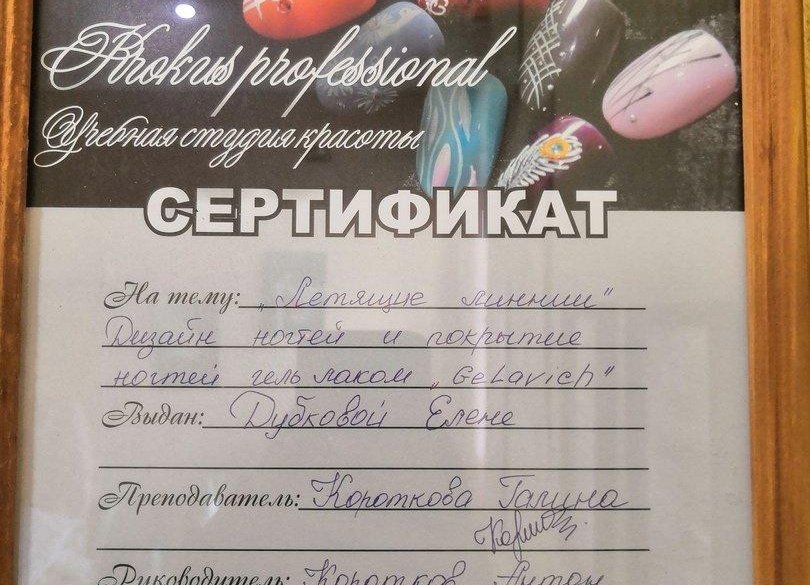 Krokus professional
Учебная студия красоты
СЕРТИФИКАТ
На тему: „Летящие линнии"
Дизайн ногтей и покрытие
ногтей гель лаком „GeLavich"
Выдан: Дубковой Елене
Преподаватель: Короткова Галина
Руководитель: Коротков Антон